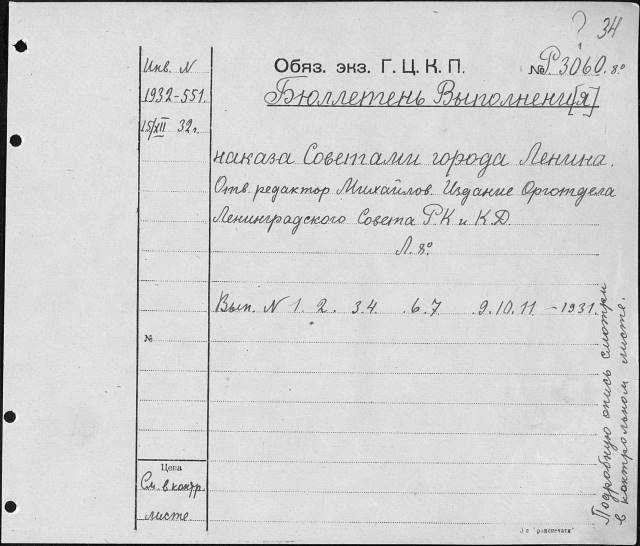 ? 34
Инв. N
1932-551.
15/XII 32 г.
Обяз. экз. Г. Ц. К. П.
№ Р3060. 8º
Бюллетень Выполнени[я]
наказа Советами города Ленина.
Отв. редактор Михайлов. Издание Орготдела
Ленинградского Совета Р.К и К.Д.
Л. 8º
Вып. N 1. 2. 3.4 .6.7. .9.10.11. – 1931.
№
Цена
См. в контр.
листе
Подробную опись смотри
в контрольном листе.